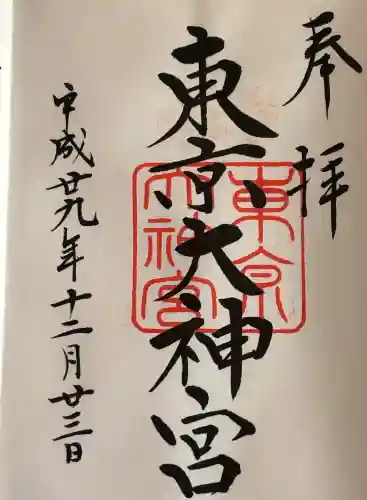 奉拝
東京大神宮
東京大神宮
平成廿九年十二月廿三日